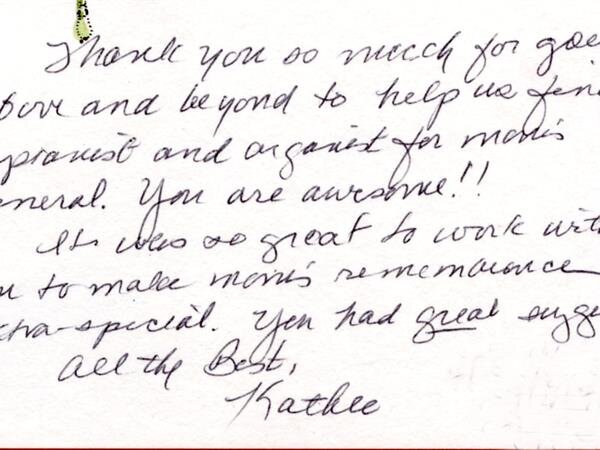 Thank you so much for goi
bove and beyond to help us fin
pianist and organist for mom's
neral. You are awesome!!
It was so great to work with
u to make mom's rememburance
xtra-special. You had great sugge
All the Best,
Kathee